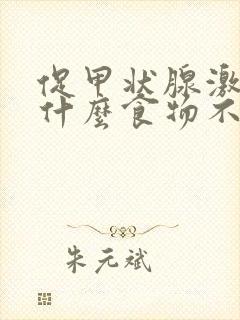 促甲状腺激
什麼食物不
朱元斌